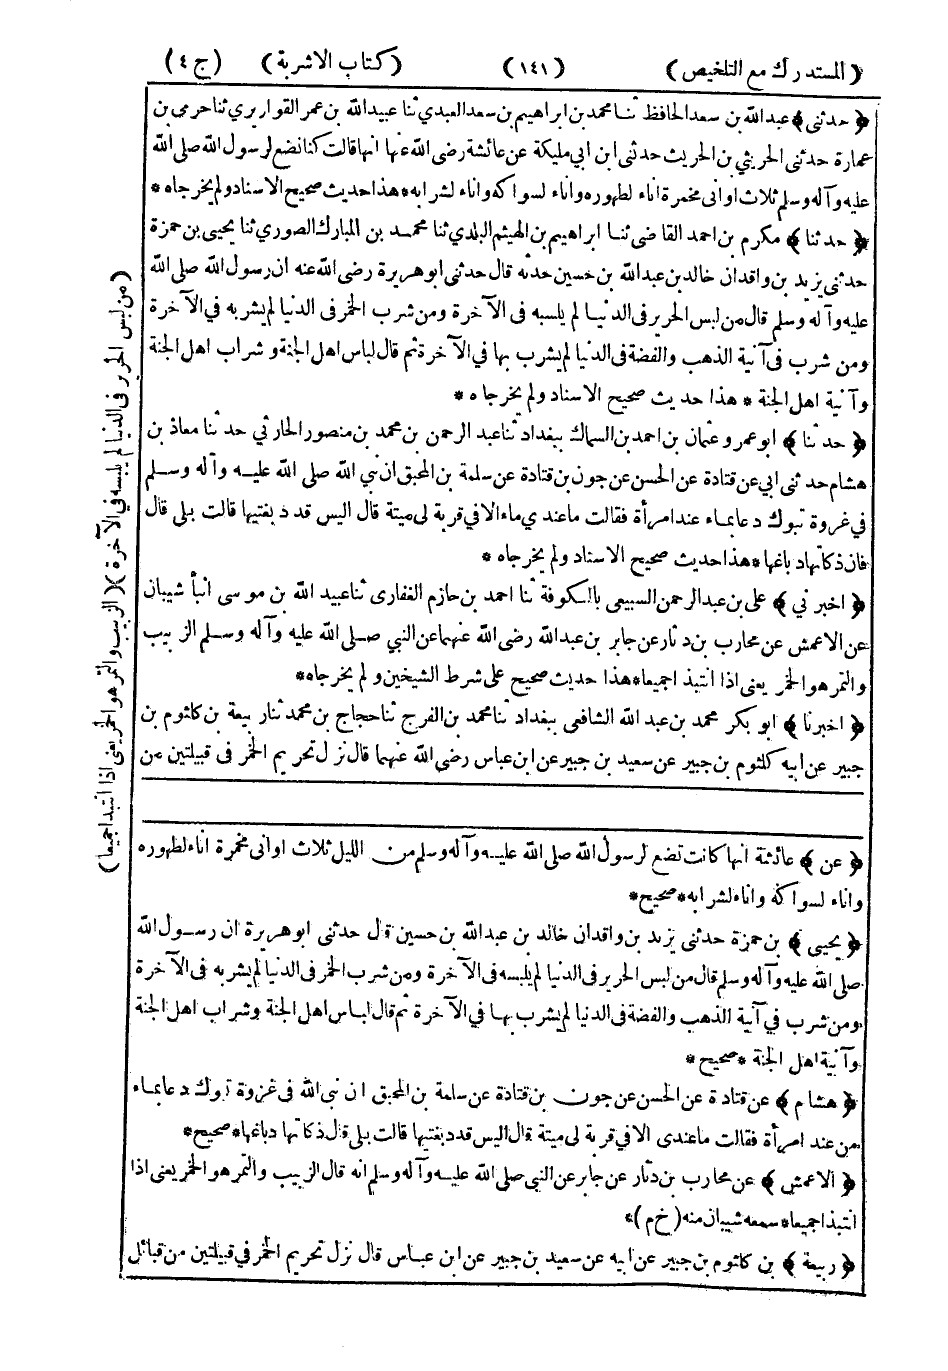 (المستدرك مع التلخيص) (١٤١) (كتاب الاشربة) (ج٤)
﴿حدثني﴾ عبدالله بن سعد الحافظ ثنا محمد بن ابراهيم بن سعد العبدي ثنا عبيدالله بن عمر القواريري ثنا حرمي بن
عمارة حدثني الحريش بن الحريث حدثني ابن ابي مليكة عن عائشة رضى الله عنها انها قالت كنا نضع لرسول الله صلى الله
عليه وآله وسلم ثلاث اوانى مخمرة اناء لطهوره واناء لسواكه واناء لشرابه * هذا حديث صحيح الاسناد ولم يخرجاه *
﴿حدثنا﴾ مكرم بن احمد القاضي ثنا ابراهيم بن الهيثم البلدي ثنا محمد بن المبارك الصوري ثنا يحيى بن حمزة
حدثني يزيد بن واقد ان خالد بن عبدالله بن حسين حدثه قال حدثني ابو هريرة رضى الله عنه ان رسول الله صلى الله
عليه وآله وسلم قال من لبس الحرير فى الدنيا لم يلبسه فى الآخرة ومن شرب الخمر فى الدنيا لم يشربه في الآخرة
ومن شرب فى آنية الذهب والفضة فى الدنيا لم يشرب بها في الآخرة ثم قال لباس اهل الجنة وشراب اهل الجنة
وآنية اهل الجنة * هذا حديث صحيح الاسناد ولم يخرجاه *
﴿حدثنا﴾ ابو عمرو عثمان بن احمد بن السماك ببغداد ثنا عبد الرحمن بن محمد بن منصور الحارثي حدثنا معاذ بن
هشام حدثني ابي عن قتادة عن الحسن عن جون بن قتادة عن سلمة بن المحبق ان نبي الله صلى الله عليه وآله وسلم
في غزوة تبوك دعا بماء عند امرأة فقالت ما عندي ماء الا في قربة لى ميتة قال اليس قد دبغتيها قالت بلى قال
فان ذكاتها دباغها * هذا حديث صحيح الاسناد ولم يخرجاه *
﴿اخبرني﴾ على بن عبد الرحمن السبيعى بالكوفة ثنا احمد بن حازم الغفارى ثنا عبيد الله بن موسى انبأ شيبان
عن الاعمش عن محارب بن دثار عن جابر بن عبدالله رضى الله عنهما عن النبي صلى الله عليه وآله وسلم الزبيب
والتمر هو الخمر يعنى اذا انتبذا جميعا * هذا حديث صحيح على شرط الشيخين ولم يخرجاه *
﴿اخبرنا﴾ ابو بكر محمد بن عبد الله الشافعى ببغداد ثنا محمد بن الفرج ثنا حجاج بن محمد ثنا ربيعة بن كلثوم بن
جبير عن ابيه كلثوم بن جبير عن سعيد بن جبير عن ابن عباس رضى الله عنهما قال نزل تحريم الخمر فى قبيلتين من
(من لبس الحرير فى الدنيا لم يلبسه في الآخرة) (الزبيب والتمر هو الخمر يعنى اذا انتبذا جميعا)
﴿عن﴾ عائشة انها كانت تضع لرسول الله صلى الله عليه وآله وسلم من الليل ثلاث اوانى مخمرة اناء لطهوره
واناء لسواكه واناء لشرابه * صحيح *
﴿يحيى﴾ بن حمزة حدثنى يزيد بن واقد ان خالد بن عبدالله بن حسين قال حدثنى ابو هريرة ان رسول الله
صلى الله عليه وآله وسلم قال من لبس الحرير فى الدنيا لم يلبسه فى الآخرة ومن شرب الخمر فى الدنيا لم يشربه فى الآخرة
ومن شرب في آنية الذهب والفضة فى الدنيا لم يشرب بها في الآخرة ثم قال لباس اهل الجنة وشراب اهل الجنة
وآنية اهل الجنة * صحيح *
﴿هشام﴾ عن قتادة عن الحسن عن جون بن قتادة عن سلمة بن المحبق ان نبى الله فى غزوة تبوك دعا بماء
من عند امرأة فقالت ما عندى الا فى قربة لى ميتة قال اليس قد دبغتيها قالت بلى قال ذكاتها دباغها * صحيح *
﴿الاعمش﴾ عن محارب بن دثار عن جابر عن النبي صلى الله عليه وآله وسلم انه قال الزبيب والتمر هو الخمر يعنى اذا
انتبذا جميعا * سمعه شيبان منه (خ م) *
﴿ربيعة﴾ بن كلثوم بن جبير عن ابيه عن سعيد بن جبير عن ابن عباس قال نزل تحريم الخمر في قبيلتين من قبائل